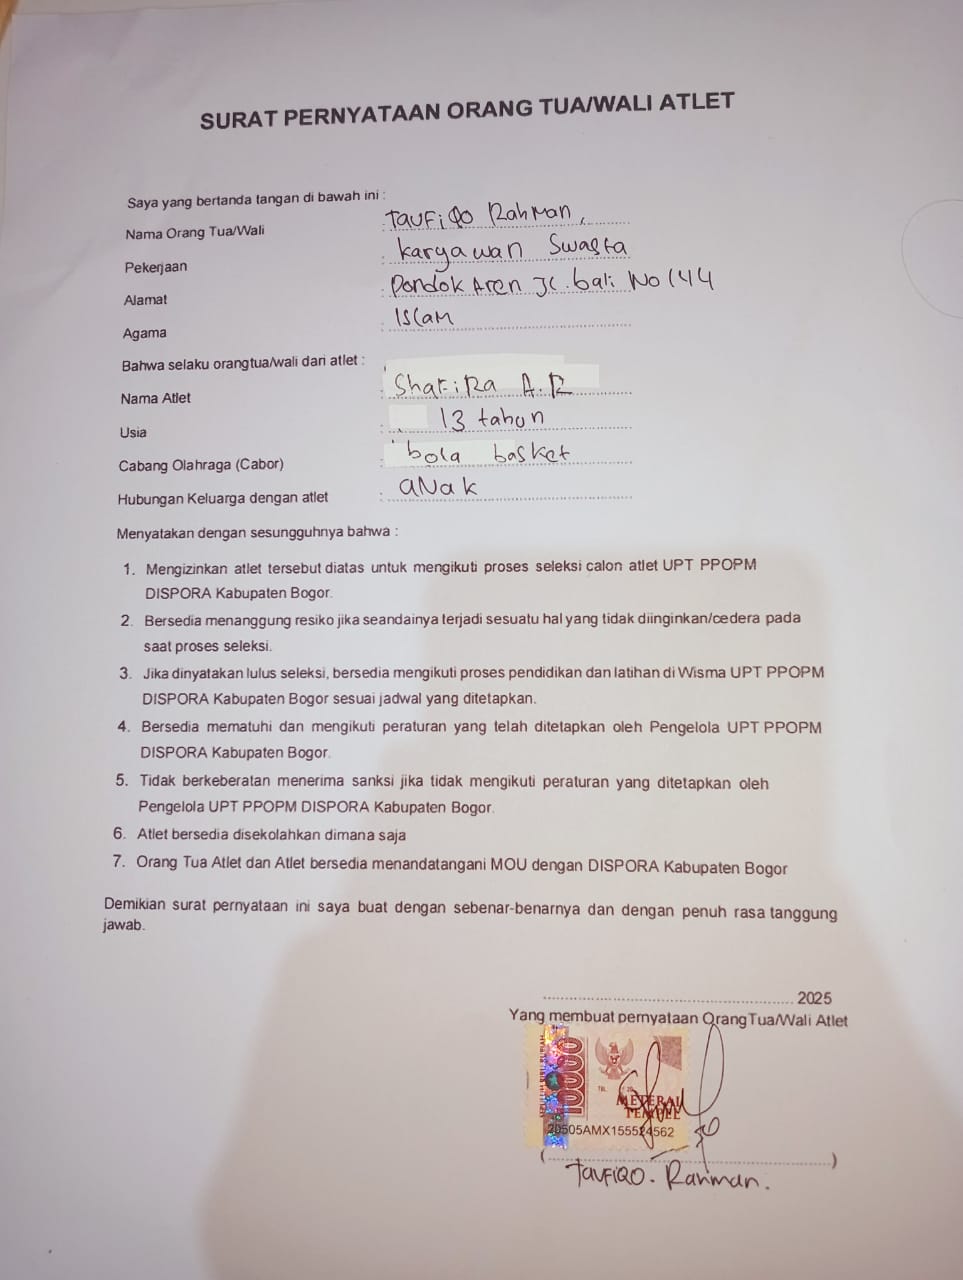 SURAT PERNYATAAN ORANG TUA/WALI ATLET
Saya yang bertanda tangan di bawah ini :
Nama Orang Tua/Wali : TAUFiQo RahMan,
Pekerjaan : karyawan Swasta
Alamat : Pondok Aren Jl. bali No 144
Agama : Islam
Bahwa selaku orangtua/wali dari atlet :
Nama Atlet : ShaFiRa A.R
Usia : 13 tahun
Cabang Olahraga (Cabor) : bola basket
Hubungan Keluarga dengan atlet : aNak
Menyatakan dengan sesungguhnya bahwa :
1. Mengizinkan atlet tersebut diatas untuk mengikuti proses seleksi calon atlet UPT PPOPM
DISPORA Kabupaten Bogor.
2. Bersedia menanggung resiko jika seandainya terjadi sesuatu hal yang tidak diinginkan/cedera pada
saat proses seleksi.
3. Jika dinyatakan lulus seleksi, bersedia mengikuti proses pendidikan dan latihan di Wisma UPT PPOPM
DISPORA Kabupaten Bogor sesuai jadwal yang ditetapkan.
4. Bersedia mematuhi dan mengikuti peraturan yang telah ditetapkan oleh Pengelola UPT PPOPM
DISPORA Kabupaten Bogor.
5. Tidak berkeberatan menerima sanksi jika tidak mengikuti peraturan yang ditetapkan oleh
Pengelola UPT PPOPM DISPORA Kabupaten Bogor.
6. Atlet bersedia disekolahkan dimana saja
7. Orang Tua Atlet dan Atlet bersedia menandatangani MOU dengan DISPORA Kabupaten Bogor
Demikian surat pernyataan ini saya buat dengan sebenar-benarnya dan dengan penuh rasa tanggung
jawab.
2025
Yang membuat pernyataan OrangTua/Wali Atlet
10000
METERAI
TEMPEL
20505AMX155524562
TAUFIQO. Rahman.